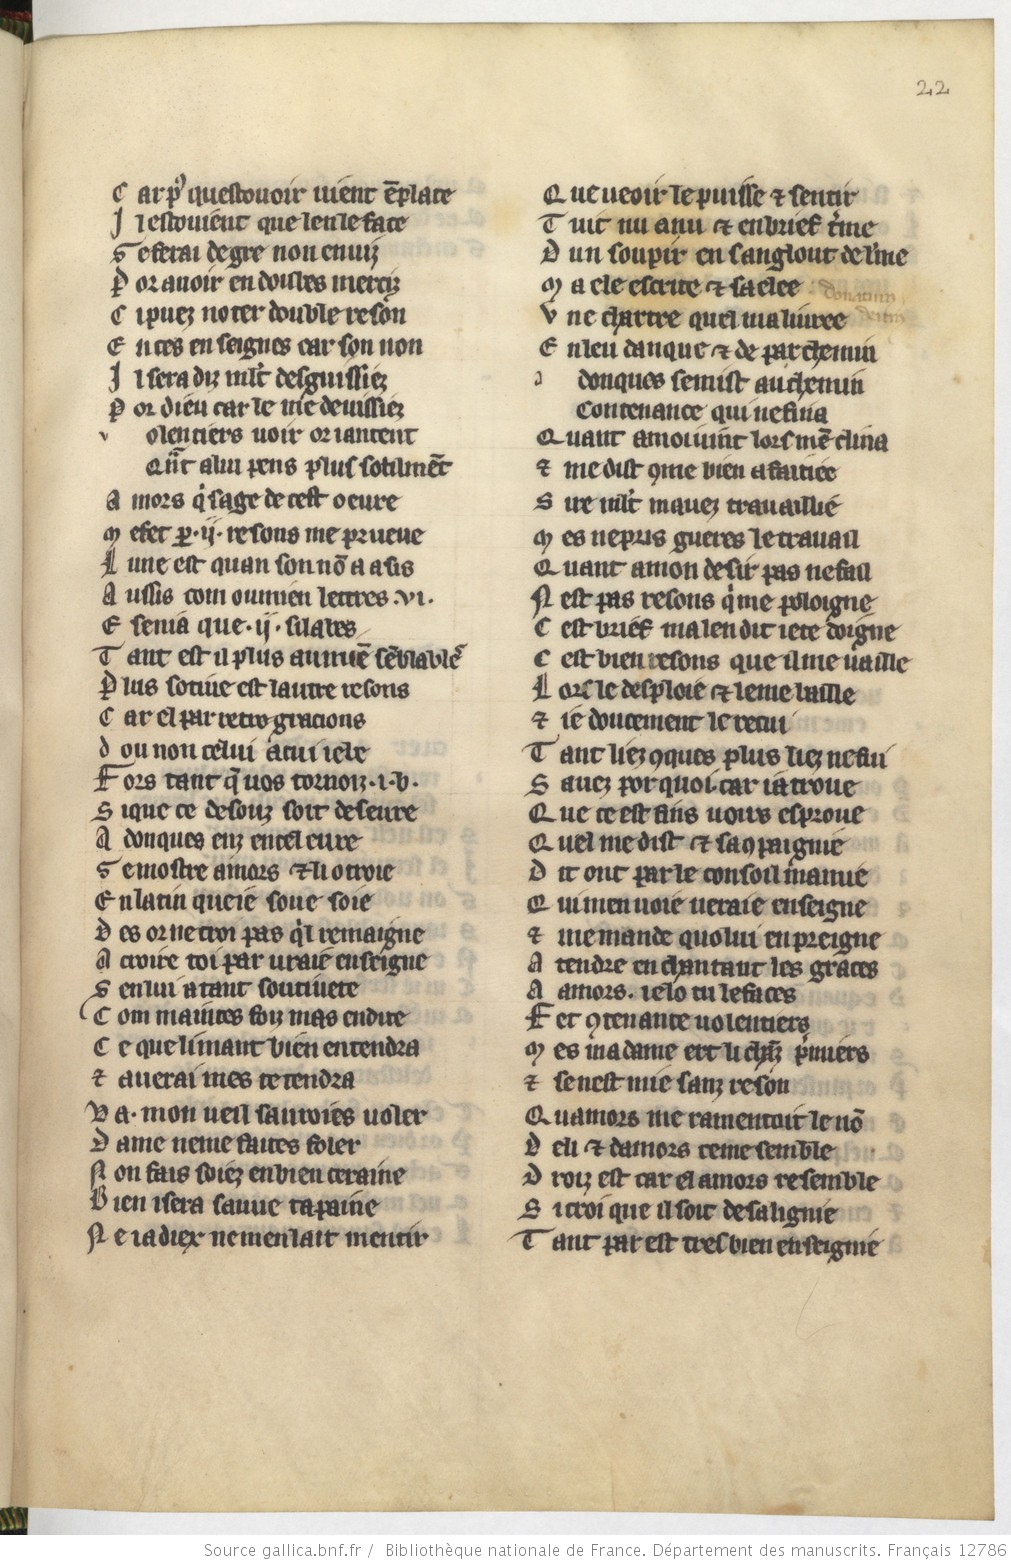 22
C ar pͬ questouoir uient ēplace
J l estouient que len le face
S e ferai de gre non enuiz
P or auoir en doubles merciz
C i puez noter double reson
E n ces enseignes car son non
J l sera diz mlt̄ desguissiez
P or dieu car le me deuissiez
v olentiers uoir or i antent
Qn̄t a lui pens plus sotilmēt
A mors q̇ sage de cest oeure
M e fet ꝑ .ij. resons me prueue
L une est quan son nō a asis
A ussis com ou mien lettres .vi.
E s en i a que .ij. silabes
T ant est il plus au miē sēblables
P lus sotiue est lautre resons
C ar el par retrogracions
D ou non celui a cui iere
F ors tant q̄ uos tornoiz .i. v.
S i que ce desouz soit deseure
A donques enz en cel eure
S e mostre amors ⁊ li otroie
E n latin que ie soue soie
D es or ne croi pas q̇l remaigne
A croire toi par uraie enseigne
S en lui a tant soutiuete
C om maintes foiz mas endite
C e que limant bien entendra
⁊ auerai mes te tendra
V a. mon ueil sauroies uoler
D ame ne me faites foler
N on fais soiez en bien certaine
B ien i sera sauue ta paine
N e ia diex ne men lait mentir
Q ue ueoir le puisse ⁊ sentir
T uit mi anui ⁊ en brief t̾me
D un soupir en sanglout de l̾me
M a cele escrite ⁊ saelee
V ne chartre quel ma liuree
E n leu danque ⁊ de parchemin
a donques se mist au chemin
Contenance qui ne fina
Q uant a moi uint lors mē clina
⁊ me dist ꝯme bien afaitiee
S ire mlt̄ mauez trauaillié
M es ne pris gueres le trauail
Q uant a mon desir pas ne fail
N est pas resons q̇ me poloigne
C est brief ma lendit iete doigne
C est bien resons que il me uaille
L ors le desploie ⁊ le me baille
⁊ ie doucement le recui
T ant liez ꝯques plus liez ne fui
S auez por quoi. car ia troue
Q ue ce est fins uoirs esproue
Q uel me dist ⁊ sa ꝯpaignie
D it ont par le consoil mamie
Q ui men uoie ueraie enseigne
⁊ me mande quo lui en preigne
A tendre en chantant les graces
A amors. ie lo tu le faces
F et ꝯtenance uolentiers
M es ma dame ert li chās pͥmiers
⁊ se nest mie sanz reson
Q uamors me ramentoit le nō
D e li ⁊ damors ce me semble
D roiz est car el amors resemble
S i croi que il soit de sa lignie
T ant par est tres bien enseignie
Source gallica.bnf.fr / Bibliothèque nationale de France. Département des manuscrits. Français 12786